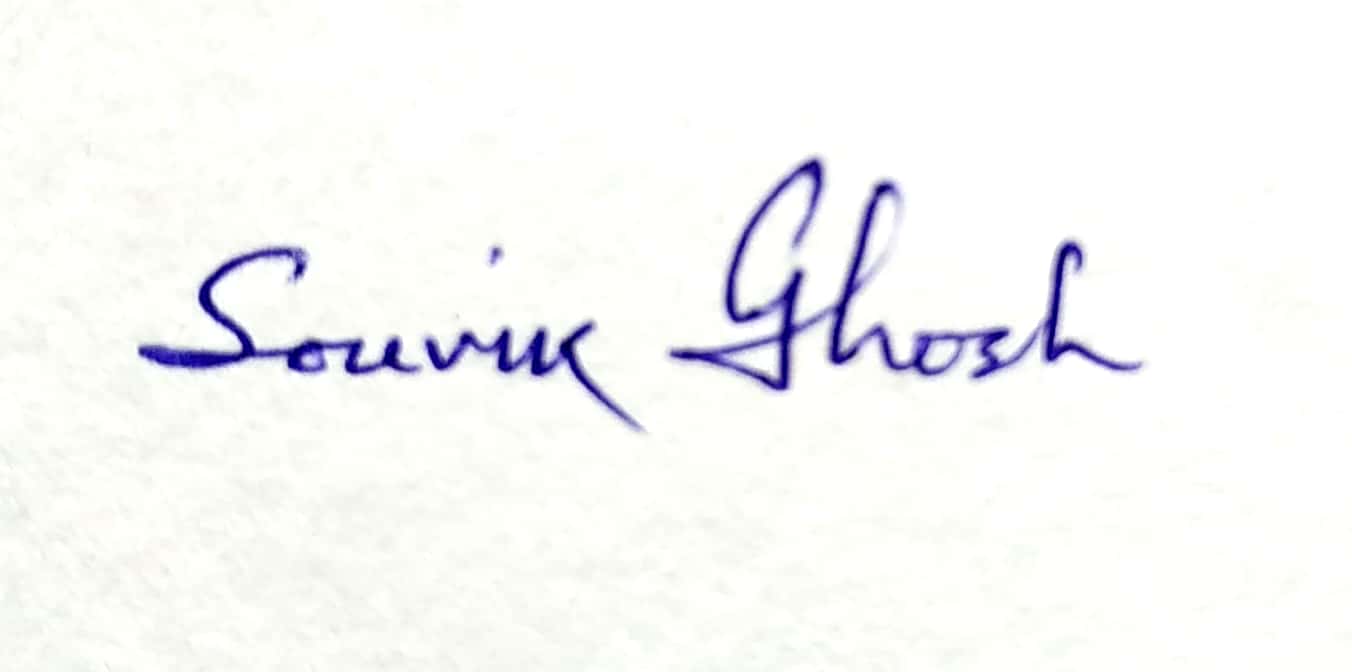 Souvik Ghosh